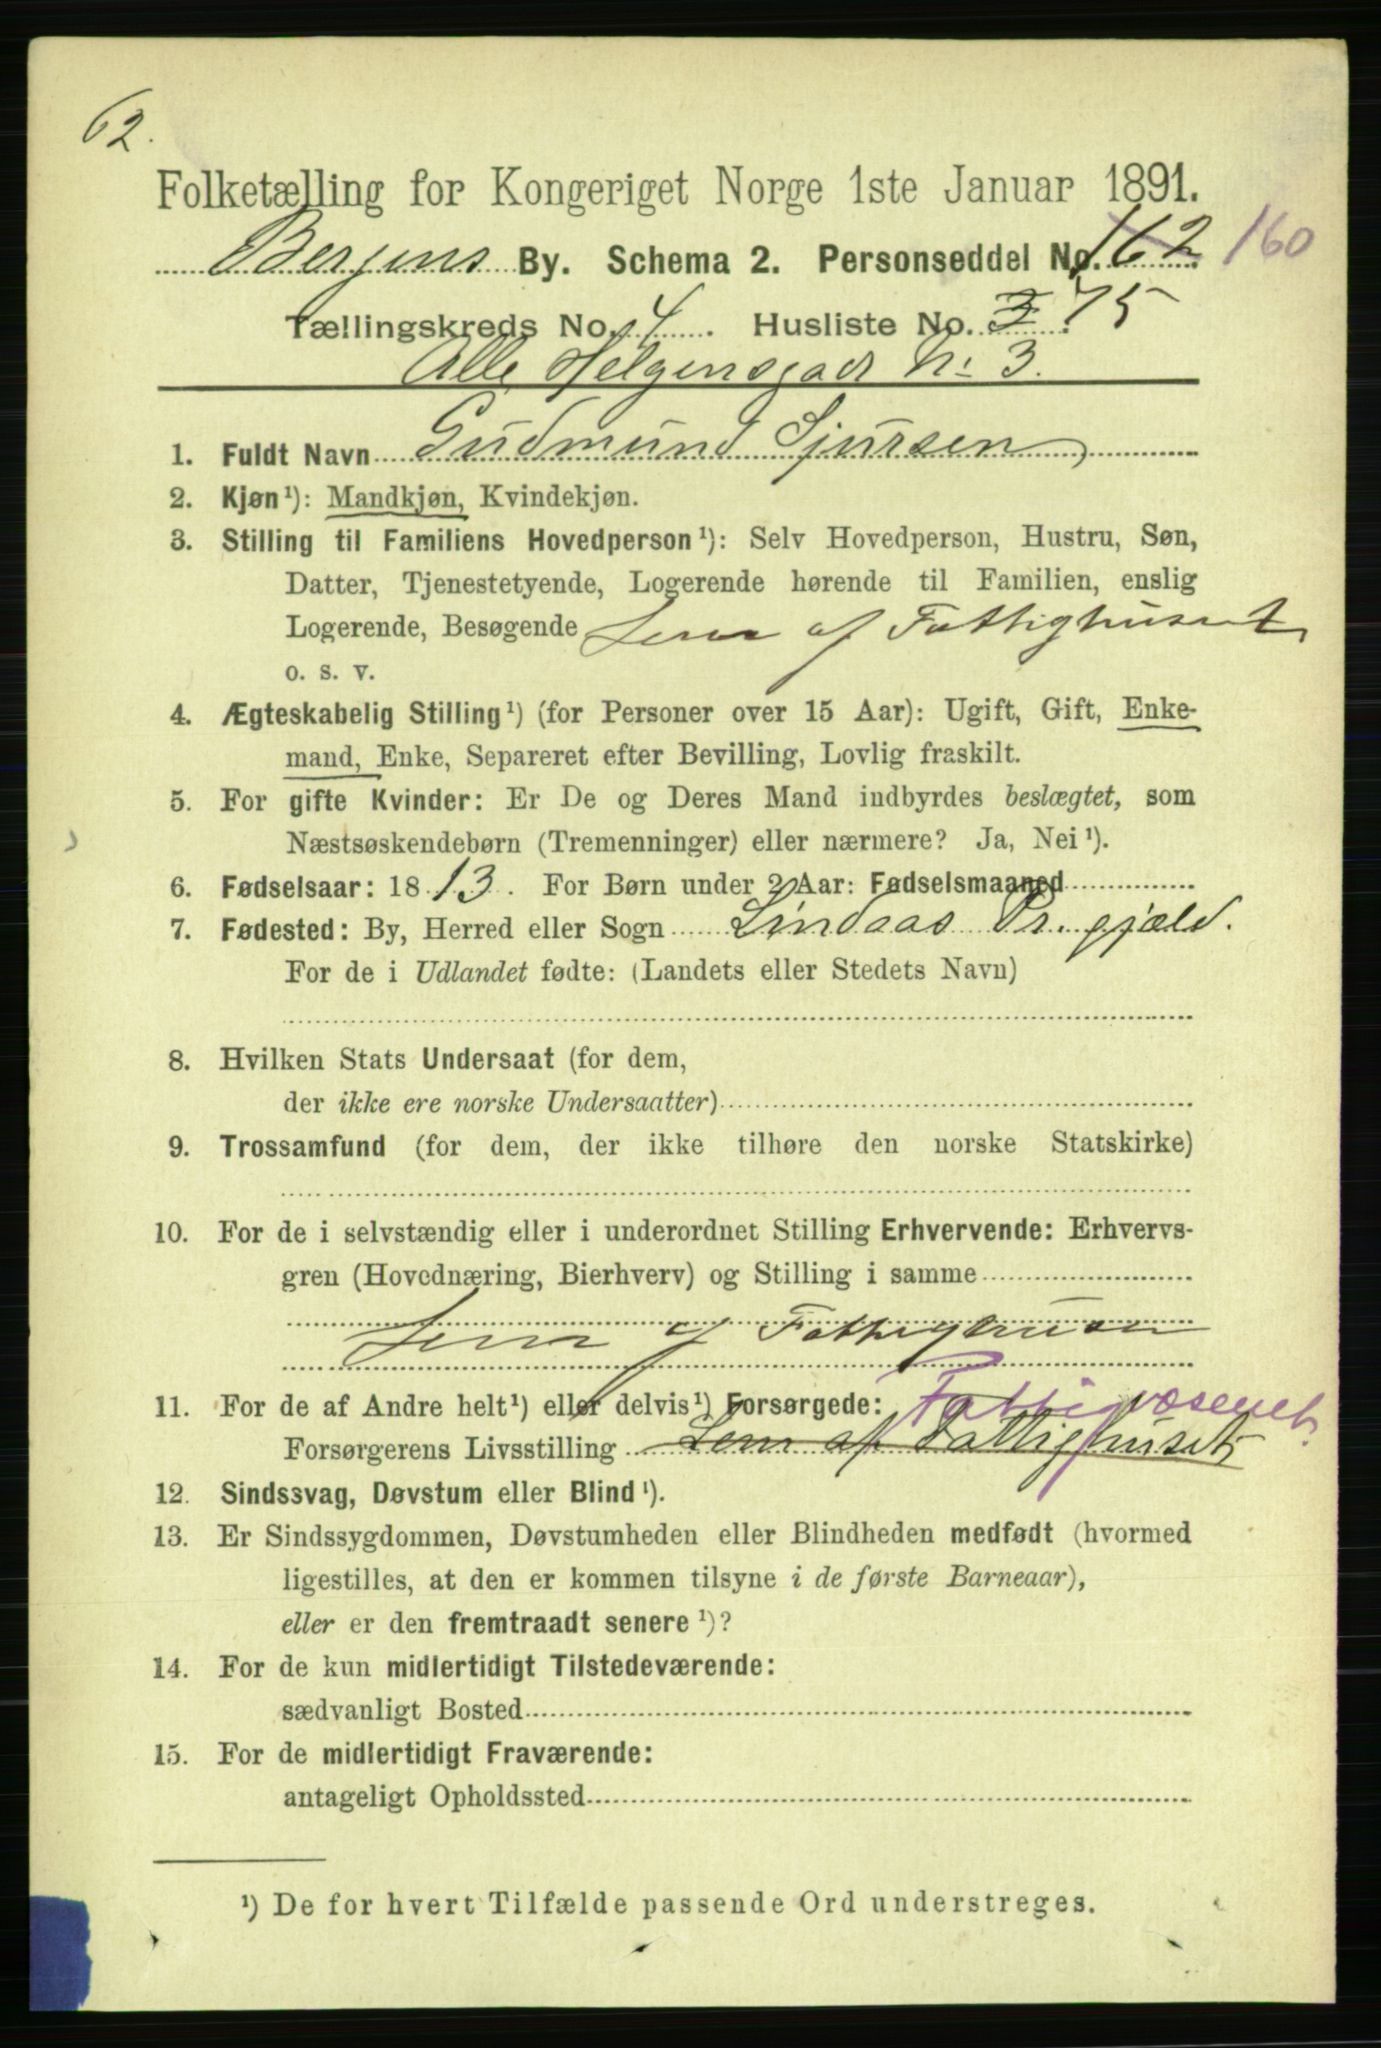 62.
Folketælling for Kongeriget Norge 1ste Januar 1891.
Bergens By. Schema 2. Personseddel No. 162 160
Tællingskreds No. 4. Husliste No. 3 75
Alle Helgensgade No. 3.
1. Fuldt Navn Gudmund Sjursen
2. Kjøn¹): Mandkjøn, Kvindekjøn.
3. Stilling til Familiens Hovedperson¹): Selv Hovedperson, Hustru, Søn,
Datter, Tjenestetyende, Logerende hørende til Familien, enslig
Logerende, Besøgende Lem af Fattighuset
o. s. v.
4. Ægteskabelig Stilling¹) (for Personer over 15 Aar): Ugift, Gift, Enke-
mand, Enke, Separeret efter Bevilling, Lovlig fraskilt.
5. For gifte Kvinder: Er De og Deres Mand indbyrdes beslægtet, som
Næstsøskendebørn (Tremenninger) eller nærmere? Ja, Nei¹).
6. Fødselsaar: 1813. For Børn under 2 Aar: Fødselsmaaned
7. Fødested: By, Herred eller Sogn Lindaas Pr.gjæld.
For de i Udlandet fødte: (Landets eller Stedets Navn)
8. Hvilken Stats Undersaat (for dem,
der ikke ere norske Undersaatter)
9. Trossamfund (for dem, der ikke tilhøre den norske Statskirke)
10. For de i selvstændig eller i underordnet Stilling Erhvervende: Erhvervs-
gren (Hovednæring, Bierhverv) og Stilling i samme
Lem af Fattighuset
11. For de af Andre helt¹) eller delvis¹) Forsørgede: Fattigvæsenet.
Forsørgerens Livsstilling Lem af Fattighuset
12. Sindssvag, Døvstum eller Blind¹).
13. Er Sindssygdommen, Døvstumheden eller Blindheden medfødt (hvormed
ligestilles, at den er kommen tilsyne i de første Barneaar),
eller er den fremtraadt senere¹)?
14. For de kun midlertidigt Tilstedeværende:
sædvanligt Bosted
15. For de midlertidigt Fraværende:
antageligt Opholdssted
¹) De for hvert Tilfælde passende Ord understreges.